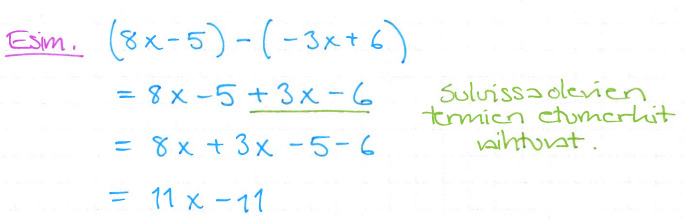 Esim. (8x-5) - (-3x+6)
= 8x-5 + 3x - 6
Sulvissa olevien
termien etumerkit
vaihtuvat.
= 8x + 3x - 5 - 6
= 11x - 11